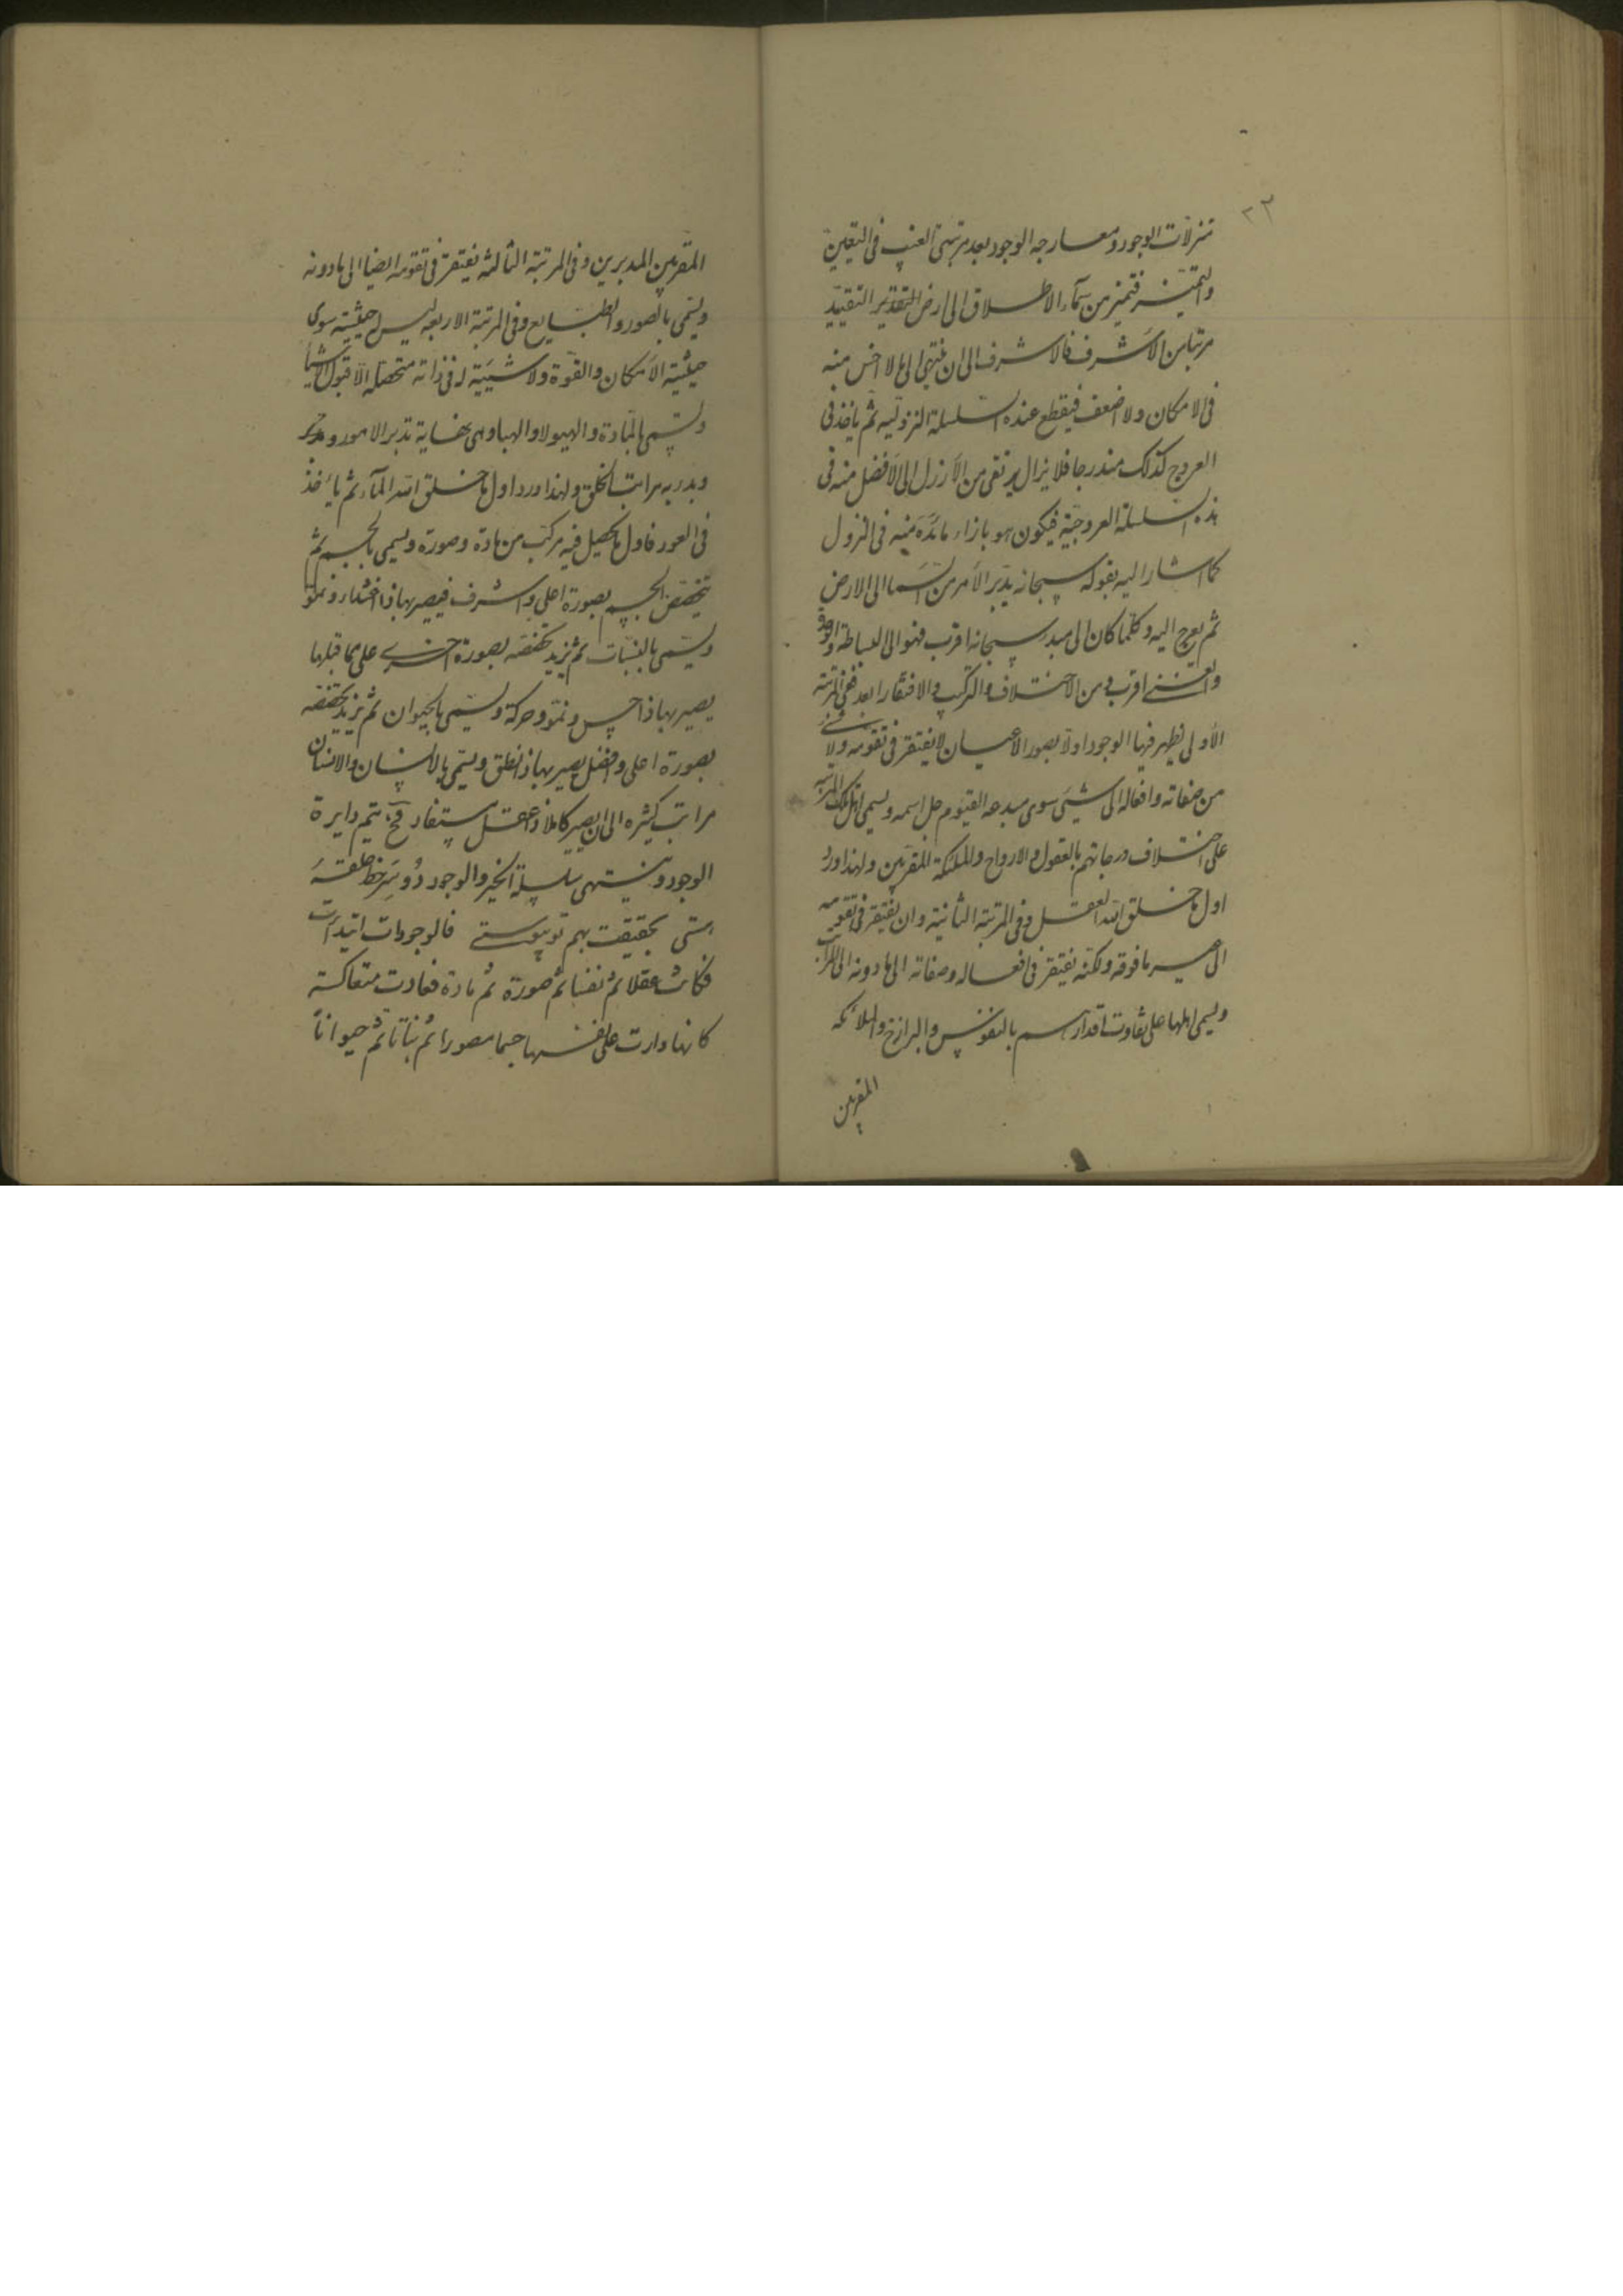 ٢٢
تنزلات الوجود ومعارجه الوجود بعد مرتبتى الغيب فى التعين
والتميز فتميز من سمآء الاطلاق الى ارض التقدير التقييد
مرتبا من الاشرف فالاشرف الى ان ينتهى الى ما لا اخس منه
فى الامكان ولا اضعف فينقطع عنده السلسلة النزوليه ثم ياخذ فى
العروج كذلك متدرجا فلا يزال يرتقى من الارذل الى الافضل منه فى
هذه السلسلة العروجية فيكون هو بازاء ما بدء منه فى النزول
كما اشار اليه بقوله سبحانه يدبر الامر من السما الى الارض
ثم يعرج اليه وكلما كان الى مبدء سبحانه اقرب فهو الى البساطة والوحدة
والغنى اقرب ومن الاختلاف والتركيب والافتقار ابعد ففى المرتبة
الاولى يظهر فيها الوجود اولا بصور الاعيان لا يفتقر فى تقومه ولا فى شئ
من صفاته وافعاله الى شيئ سوى مبدعه القيوم جل اسمه ويسمى اهل تلك المرتبه
على اختلاف درجاتهم بالعقول والارواح والملئكة المقربين ولهذا ورد
اول ما خلق الله العقل وفى المرتبة الثانية وان يفتقر فى تقومه
الى غير ما فوقه ولكنه يفتقر فى افعاله وصفاته الى ما دونه
ويسمى اهلها على تفاوت اقدارهم بالنفوس والبرازخ والملائكه
المقربين
المقربين المدبرين وفى المرتبة الثالثه يفتقر فى تقومه ايضا الى ما دونه
ويسمى بالصور والطبايع وفى المرتبة الاربعه ليس له حيثية سوى
حيثية الامكان والقوة ولا شيئية له فى ذاته متحصله الا قبول الاشيا
ويسمى بالمادة والهيولا والهبا وهى نهاية تدبر الامور
وبدء به مراتب الخلق ولهذا ورد اول ما خلق الله المآء ثم يأخذ
فى العود فاول ما يحصل فيه مركب من مادة وصورة ويسمى بالجسم ثم
يتخصص الجسم بصورة اعلى واشرف فيصير بها ذا اغتذاء ونمو
ويسمى بالنبات ثم يزيد تخصصه بصورة اخرى على ما قبلها
يصير بها ذا حس ونمو وحركة ويسمى بالحيوان ثم يزيد تخصصه
بصورة اعلى وافضل يصير بها ذا نطق ويسمى بالانسان والانسان
مراتب كثيره الى ان يصير كاملا ذا عقل مستفاد فح يتم دايرة
الوجود وينتهى سلسلة الخير والوجود دو سر خط حلقهٔ
هستى بحقيقت بهم تو پيوستى فالوجودات ابتدات
فكانت عقلا ثم نفسا ثم صورة ثم مادة فعادت متعاكسة
كانها دارت على نفسها جسما مصورا ثم نباتا ثم حيوانا